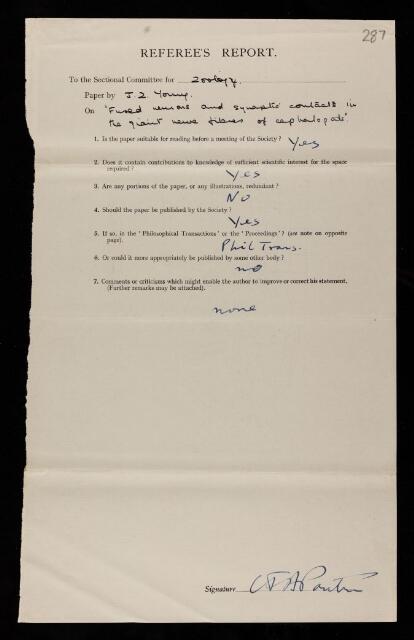 287
REFEREE'S REPORT.
To the Sectional Committee for Zoology.
Paper by J. Z. Young.
On 'Fused neurons and synaptic contacts in
the giant nerve fibres of cephalopods'
1. Is the paper suitable for reading before a meeting of the Society? Yes
2. Does it contain contributions to knowledge of sufficient scientific interest for the space
required?
Yes
3. Are any portions of the paper, or any illustrations, redundant?
No
4. Should the paper be published by the Society?
Yes
5. If so, in the 'Philosophical Transactions' or the 'Proceedings'? (see note on opposite
page).
Phil Trans.
6. Or could it more appropriately be published by some other body?
no
7. Comments or criticisms which might enable the author to improve or correct his statement.
(Further remarks may be attached).
none
Signature C F A Pantin